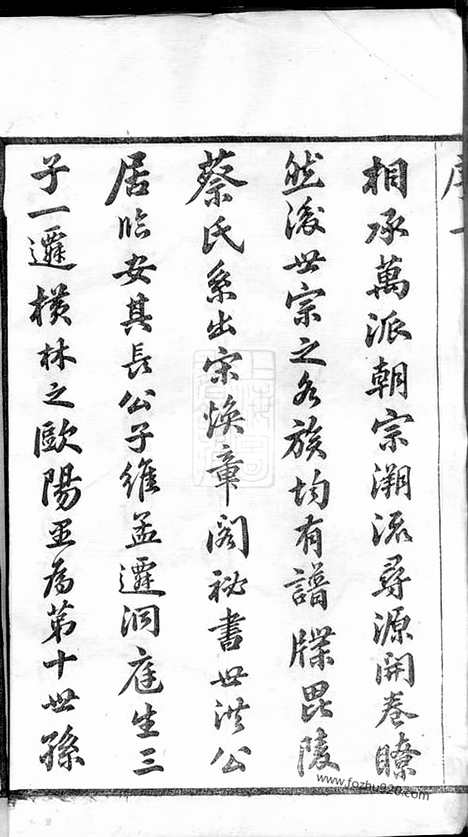 相承萬派朝宗溯流尋源開卷瞭
然後世宗之各族均有譜牒毘陵
蔡氏系出宋煥章閣祕書世洪公
居臨安其長公子維孟遷洞庭生三
子一遷橫林之歐陽里為第十世孫
www.fozhu920.com